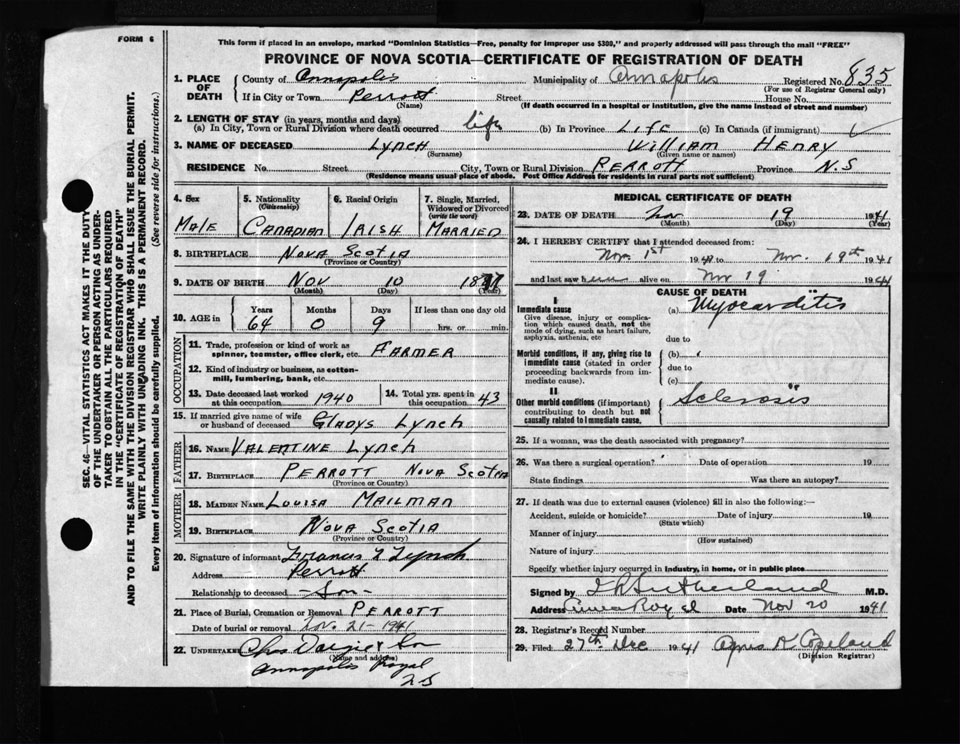 FORM 6
This form if placed in an envelope, marked "Dominion Statistics—Free, penalty for improper use $300," and properly addressed will pass through the mail "FREE"
PROVINCE OF NOVA SCOTIA—CERTIFICATE OF REGISTRATION OF DEATH
SEC. 46—VITAL STATISTICS ACT MAKES IT THE DUTY
OF THE UNDERTAKER OR PERSON ACTING AS UNDER-
TAKER TO OBTAIN ALL THE PARTICULARS REQUIRED
IN THE "CERTIFICATE OF REGISTRATION OF DEATH"
AND TO FILE THE SAME WITH THE DIVISION REGISTRAR WHO SHALL ISSUE THE BURIAL PERMIT.
WRITE PLAINLY WITH UNFADING INK. THIS IS A PERMANENT RECORD.
Every item of information should be carefully supplied. (See reverse side for instructions.)
1. PLACE OF DEATH County of Annapolis Municipality of Annapolis Registered No. 835
(For use of Registrar General only)
If in City or Town Perrott Street House No.
(Name) (If death occurred in a hospital or institution, give the name instead of street and number)
2. LENGTH OF STAY (in years, months and days)
(a) In City, Town or Rural Division where death occurred life (b) In Province LIFE (c) In Canada (if immigrant)
3. NAME OF DECEASED LYNCH WILLIAM HENRY
(Surname) (Given name or names)
RESIDENCE No. Street City, Town or Rural Division PERROTT Province N.S
(Residence means usual place of abode. Post Office Address for residents in rural parts not sufficient)
4. Sex 5. Nationality (Citizenship) 6. Racial Origin 7. Single, Married, Widowed or Divorced (write the word)
MALE CANADIAN IRISH MARRIED
8. BIRTHPLACE NOVA SCOTIA
(Province or Country)
9. DATE OF BIRTH NOV 10 1877
(Month) (Day) (Year)
10. AGE in Years Months Days If less than one day old
64 0 9 hrs. or min.
OCCUPATION
11. Trade, profession or kind of work as spinner, teamster, office clerk, etc. FARMER
12. Kind of industry or business, as cotton-mill, lumbering, bank, etc.
13. Date deceased last worked at this occupation 1940 14. Total yrs. spent in this occupation 43
15. If married give name of wife or husband of deceased GLADYS LYNCH
FATHER
16. NAME VALENTINE LYNCH
17. BIRTHPLACE PERROTT NOVA SCOTIA
(Province or Country)
MOTHER
18. MAIDEN NAME LOUISA MAILMAN
19. BIRTHPLACE NOVA SCOTIA
(Province or Country)
20. Signature of informant Francis Lynch
Address Perrott
Relationship to deceased Son
21. Place of Burial, Cremation or Removal PERROTT
Date of burial or removal Nov. 21-1941
22. UNDERTAKER Chas Dargie & Son
(Name and address)
Annapolis Royal
MEDICAL CERTIFICATE OF DEATH
23. DATE OF DEATH Nov 19 1941
(Month) (Day) (Year)
24. I HEREBY CERTIFY that I attended deceased from:
Nov. 1st 1941 to Nov. 19th 1941
and last saw him alive on Nov 19 1941
CAUSE OF DEATH
I
Immediate cause
Give disease, injury or complication which caused death, not the mode of dying, such as heart failure, asphyxia, asthenia, etc
(a) Myocarditis
due to
Morbid conditions, if any, giving rise to immediate cause (stated in order proceeding backwards from immediate cause).
(b)
due to
(c)
II
Other morbid conditions (if important) contributing to death but not causally related to immediate cause.
Sclerosis
25. If a woman, was the death associated with pregnancy?
26. Was there a surgical operation? Date of operation 19
State findings Was there an autopsy?
27. If death was due to external causes (violence) fill in also the following:—
Accident, suicide or homicide? Date of injury 19
(State which)
Manner of injury
(How sustained)
Nature of injury
Specify whether injury occurred in industry, in home, or in public place
Signed by Sutherland M.D.
Address Anna Royal Date Nov 20 1941
28. Registrar's Record Number
29. Filed: 27th Dec 1941 Agnes K Copeland
(Division Registrar)